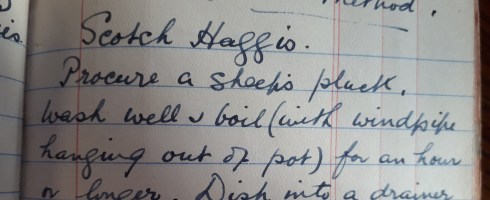 Method.
Scotch Haggis.
Procure a sheep's pluck.
Wash well & boil (with windpipe
hanging out of pot) for an hour
or longer. Dish into a drainer